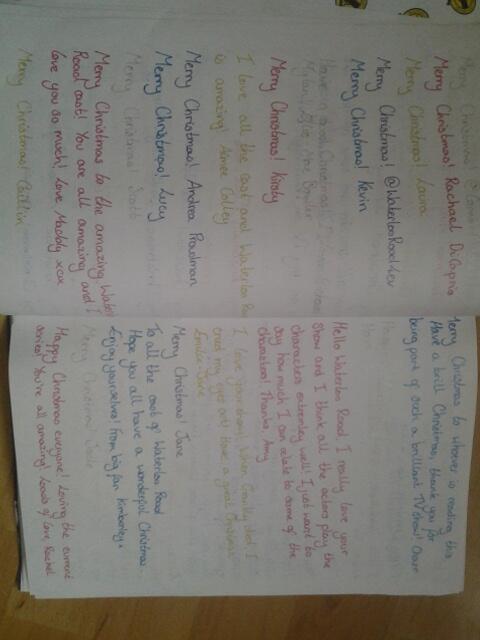 Merry Christmas!
Merry Christmas! Rachael DiCaprio
Merry Christmas! Laura
Merry Christmas! @WaterlooRoadLev
Merry Christmas! Kevin
Merry Christmas! Kirsty
I love all the cast and Waterloo Ro
is amazing! Aimee Colley
Merry Christmas! Andrea Pradman
Merry Christmas! Lucy
Merry Christmas!
Merry Christmas to the amazing Water
Road cast! You are all amazing and I
love you so much! Love Maddy xox
Merry Christmas! Caitlin
Merry Christmas to whoever is reading this
Have a brill Christmas, thank you for
being part of such a brilliant TV show!
Hello Waterloo Road, I really love your
show and I think all the actors play the
characters extremley well! I just want to
say how much I can relate to some of the
characters! Thanks Amy
I love your show! When Grantly died I
cried my eyes out! Have a great Christmas
Emilia Jane
Merry Christmas! Jane
To all the cast of Waterloo Road
Hope you all have a wonderful Christmas
Enjoy yourselves! From big fan Kimberley x
Merry Christmas! Jade
Happy Christmas everyone! Loving the current
series! You're all amazing! Loads of love, Rachel